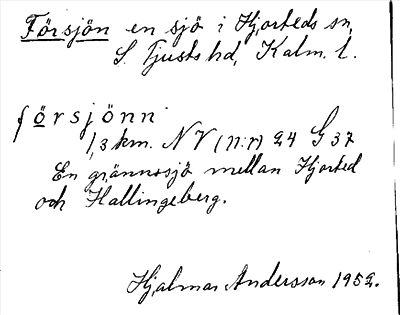 Försjön en sjö i Hjorteds sn,
S. Tjusts hd, Kalm. l.
försjönn
1,3 km. NV (n:r) 24 G 37
En gränssjö mellan Hjorted
och Hallingeberg.
Hjalmar Andersson 1952.